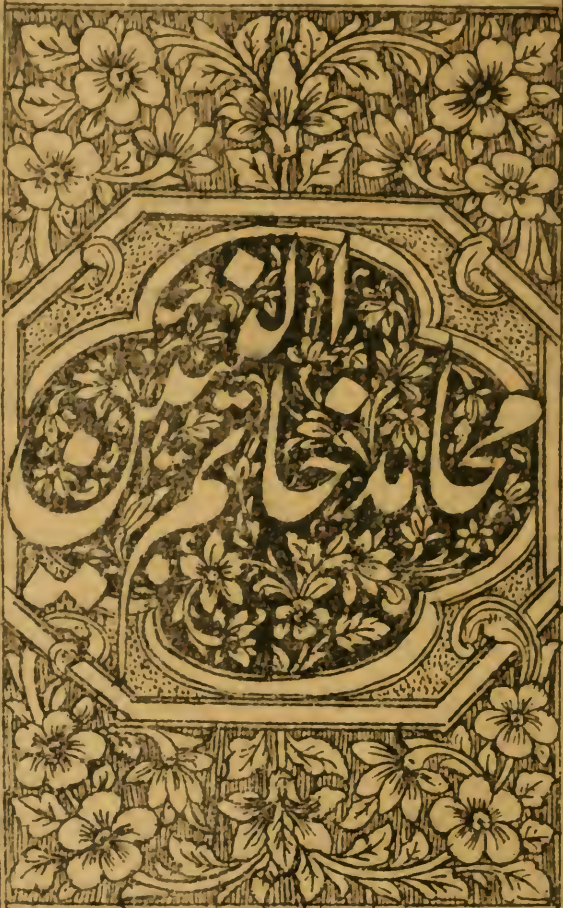 محامد خاتم النبیین